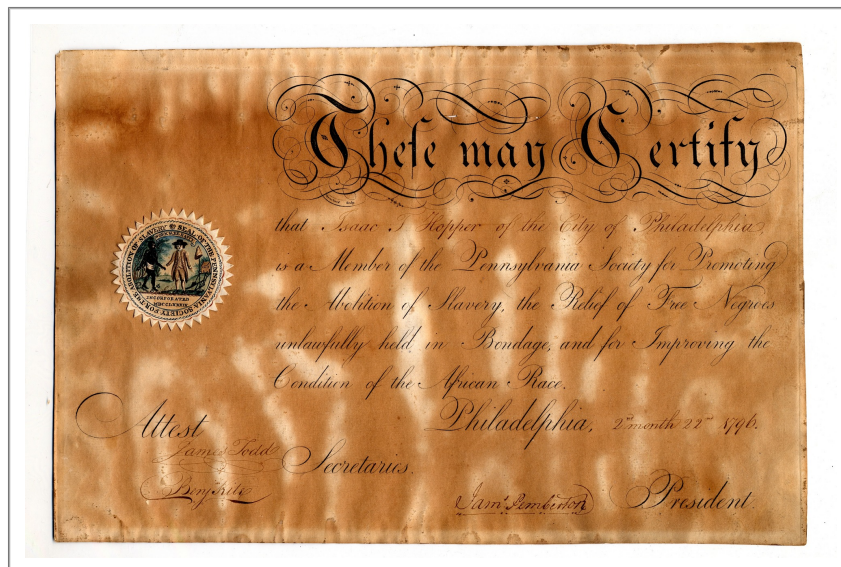 Theſe may Certify
that Isaac T Hopper of the City of Philadelphia
is a Member of the Pennsylvania Society for Promoting
the Abolition of Slavery, the Relief of Free Negroes
unlawfully held in Bondage, and for Improving the
Condition of the African Race.
Philadelphia, 2d month 22nd 1796.
Attest
James Todd
Benj Kite
Secretaries.
Jams Pemberton
President.
SEAL OF THE PENNSYLVANIA SOCIETY FOR THE ABOLITION OF SLAVERY
INCORPORATED
MDCCLXXXIX